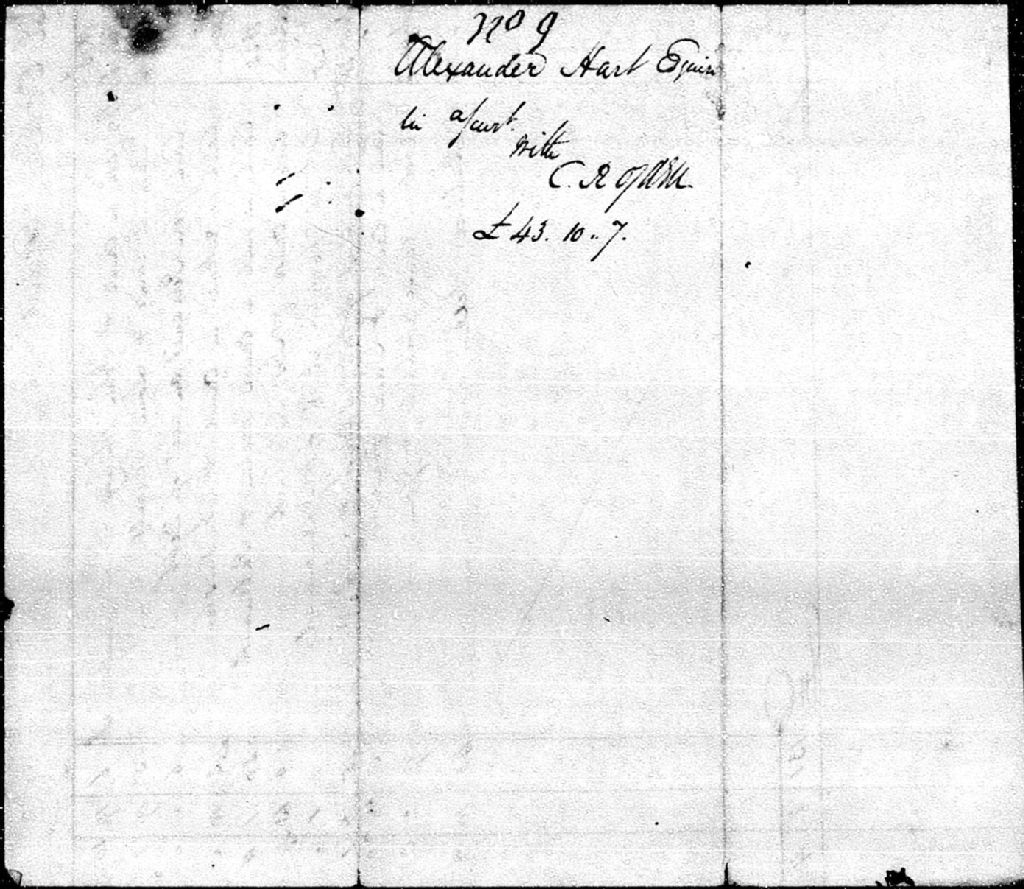 No 9
Alexander Hart Esquire
in a/curt
with
C. R Ogden
£ 43. 10.. 7.